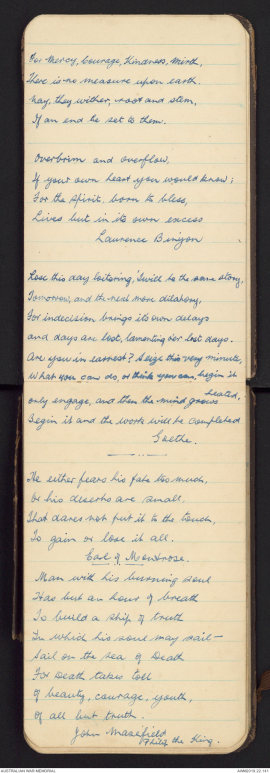 For Mercy, Courage, Kindness, Mirth,
There is no measure upon earth.
Nay, they wither, root and stem,
If an end be set to them.
Overbrim and overflow,
If your own heart you would know;
For the spirit, born to bless,
Lives but in its own excess
Laurence Binyon
Lose this day loitering, 'twill be the same story,
Tomorrow, and the next more dilatory,
For indecision brings its own delays
and days are lost, lamenting o'er lost days.
Are you in earnest? Seize this very minute,
What you can do, or think you can, begin it
only engage, and then the mind grows heated,
Begin it and the work will be completed
Goethe.
He either fears his fate too much,
Or his deserts are small,
That dares not put it to the touch,
To gain or lose it all.
Earl of Montrose.
Man with his burning soul
Has but an hour of breath
To build a ship of truth
In which his soul may sail—
Sail on the sea of Death
For Death takes toll
of beauty, courage, youth,
of all but truth.
John Masefield
Philip the King.
AUSTRALIAN WAR MEMORIAL